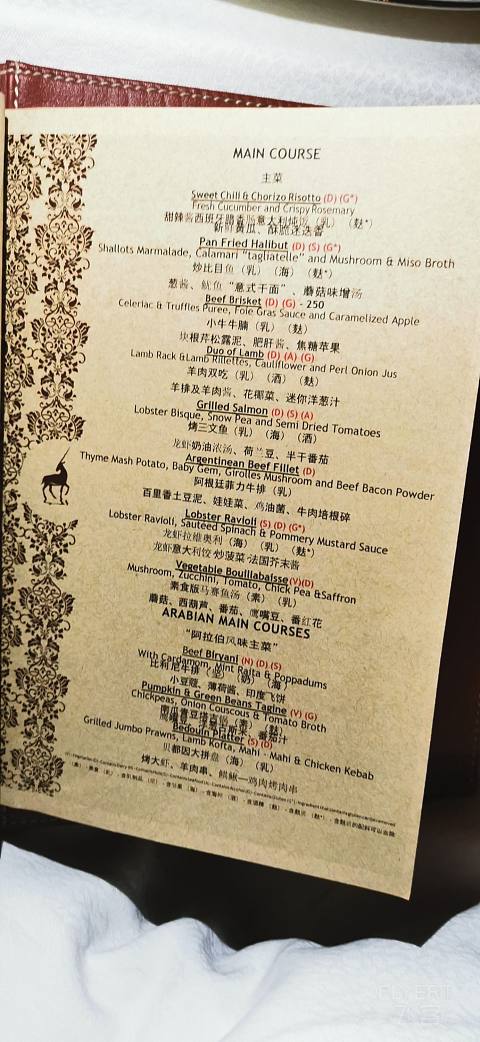 MAIN COURSE
主菜
Sweet Chili & Chorizo Risotto (D) (G*)
Fresh Cucumber and Crispy Rosemary
甜辣酱西班牙腊香肠意大利炖饭（乳）（麸*）
新鲜黄瓜、酥脆迷迭香
Pan Fried Halibut (D) (S) (G*)
Shallots Marmalade, Calamari "tagliatelle" and Mushroom & Miso Broth
炒比目鱼（乳）（海）（麸*）
葱酱、鱿鱼“意式干面”、蘑菇味增汤
Beef Brisket (D) (G) - 250
Celeriac & Truffles Puree, Foie Gras Sauce and Caramelized Apple
小牛牛腩（乳）（麸）
块根芹松露泥、肥肝酱、焦糖苹果
Duo of Lamb (D) (A) (G)
Lamb Rack &Lamb Rillettes, Cauliflower and Perl Onion Jus
羊肉双吃（乳）（酒）（麸）
羊排及羊肉酱、花椰菜、迷你洋葱汁
Grilled Salmon (D) (S) (A)
Lobster Bisque, Snow Pea and Semi Dried Tomatoes
烤三文鱼（乳）（海）（酒）
龙虾奶油浓汤、荷兰豆、半干番茄
Argentinean Beef Fillet (D)
Thyme Mash Potato, Baby Gem, Girolles Mushroom and Beef Bacon Powder
阿根廷菲力牛排（乳）
百里香土豆泥、娃娃菜、鸡油菌、牛肉培根碎
Lobster Ravioli (S) (D) (G*)
Lobster Ravioli, Sautéed Spinach & Pommery Mustard Sauce
龙虾拉维奥利（海）（乳）（麸*）
龙虾意大利饺·炒菠菜·法国芥末酱
Vegetable Bouillabaisse(V)(D)
Mushroom, Zucchini, Tomato, Chick Pea &Saffron
素食版马赛鱼汤（素）（乳）
蘑菇、西葫芦、番茄、鹰嘴豆、番红花
ARABIAN MAIN COURSES
“阿拉伯风味主菜”
Beef Biryani (N) (D) (S)
With Cardamom, Mint Raita & Poppadums
比利尼牛排（坚）（奶）（海）
小豆蔻、薄荷酱、印度飞饼
Pumpkin & Green Beans Tagine (V) (G)
Chickpeas, Onion Couscous & Tomato Broth
Bedouin platter (S) (D)
Grilled Jumbo Prawns, Lamb Kofta, Mahi - Mahi & Chicken Kebab
贝都因大拼盘（海）（乳）
烤大虾、羊肉串、鲯鳅一鸡肉烤肉串